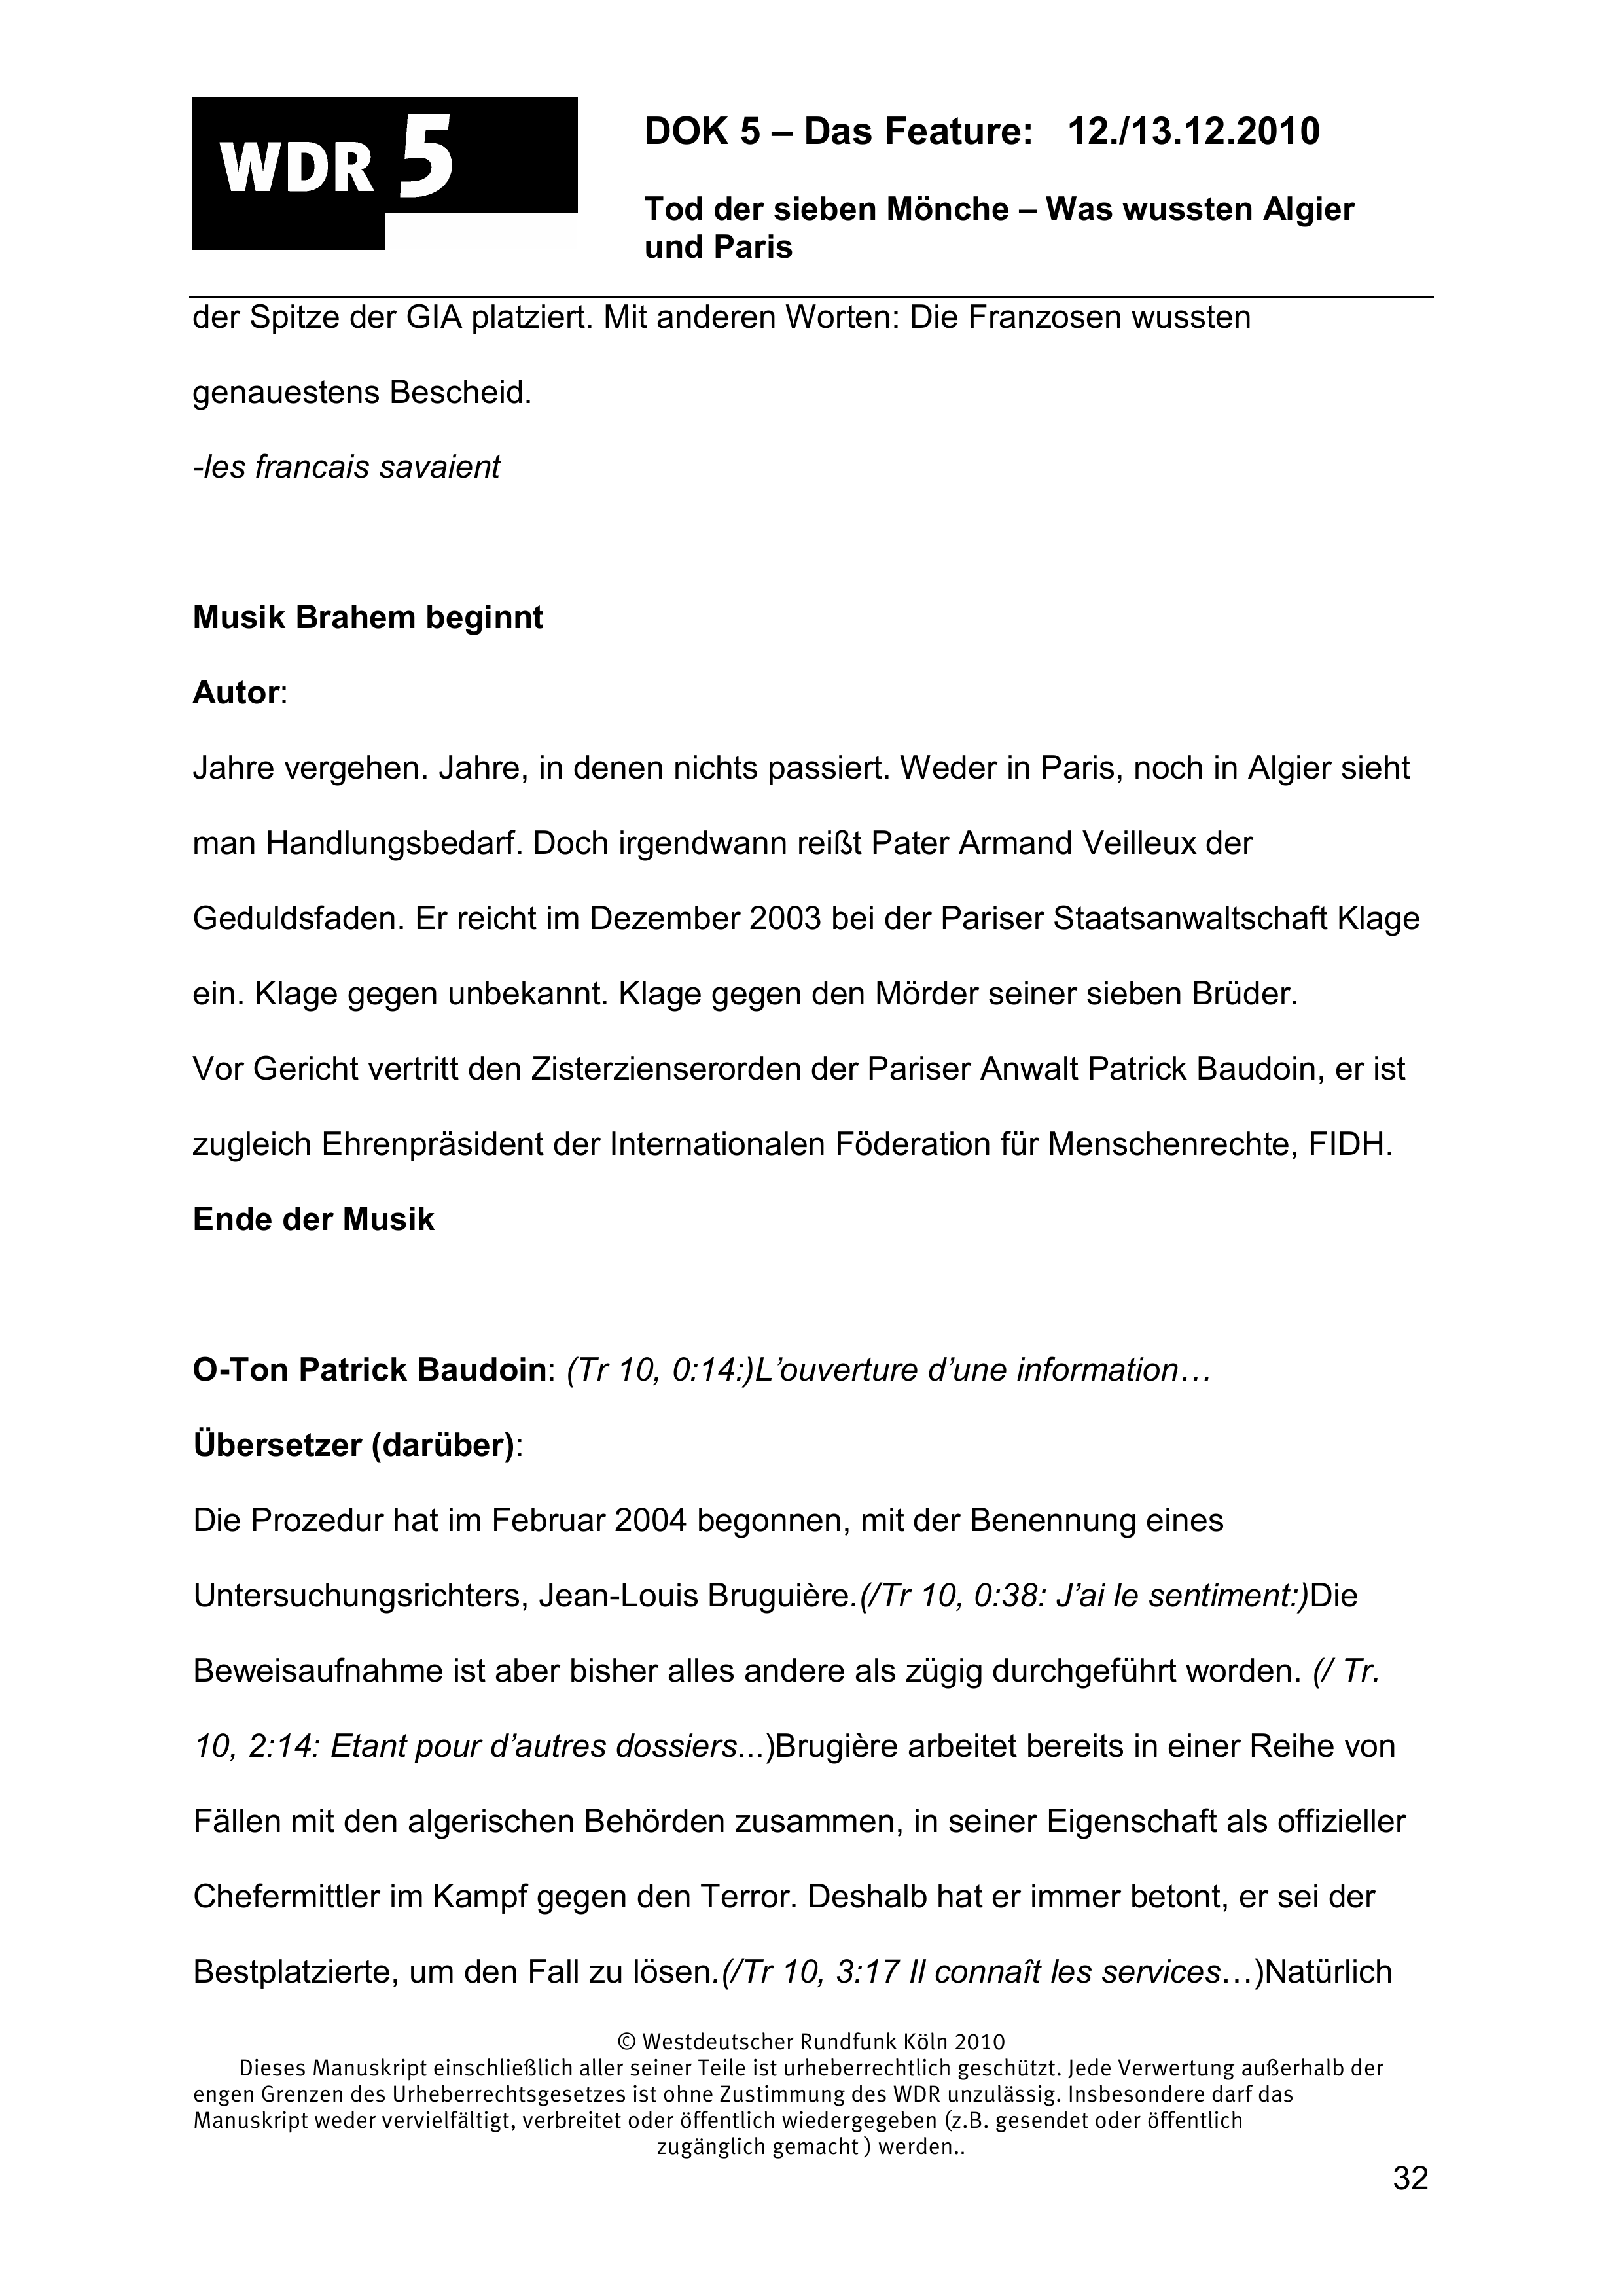 WDR 5
DOK 5 – Das Feature: 12./13.12.2010
Tod der sieben Mönche – Was wussten Algier
und Paris
der Spitze der GIA platziert. Mit anderen Worten: Die Franzosen wussten
genauestens Bescheid.
-les francais savaient
Musik Brahem beginnt
Autor:
Jahre vergehen. Jahre, in denen nichts passiert. Weder in Paris, noch in Algier sieht
man Handlungsbedarf. Doch irgendwann reißt Pater Armand Veilleux der
Geduldsfaden. Er reicht im Dezember 2003 bei der Pariser Staatsanwaltschaft Klage
ein. Klage gegen unbekannt. Klage gegen den Mörder seiner sieben Brüder.
Vor Gericht vertritt den Zisterzienserorden der Pariser Anwalt Patrick Baudoin, er ist
zugleich Ehrenpräsident der Internationalen Föderation für Menschenrechte, FIDH.
Ende der Musik
O-Ton Patrick Baudoin: (Tr 10, 0:14:)L’ouverture d’une information…
Übersetzer (darüber):
Die Prozedur hat im Februar 2004 begonnen, mit der Benennung eines
Untersuchungsrichters, Jean-Louis Bruguière.(/Tr 10, 0:38: J’ai le sentiment:)Die
Beweisaufnahme ist aber bisher alles andere als zügig durchgeführt worden. (/ Tr.
10, 2:14: Etant pour d’autres dossiers...)Brugière arbeitet bereits in einer Reihe von
Fällen mit den algerischen Behörden zusammen, in seiner Eigenschaft als offizieller
Chefermittler im Kampf gegen den Terror. Deshalb hat er immer betont, er sei der
Bestplatzierte, um den Fall zu lösen.(/Tr 10, 3:17 Il connaît les services…)Natürlich
© Westdeutscher Rundfunk Köln 2010
Dieses Manuskript einschließlich aller seiner Teile ist urheberrechtlich geschützt. Jede Verwertung außerhalb der
engen Grenzen des Urheberrechtsgesetzes ist ohne Zustimmung des WDR unzulässig. Insbesondere darf das
Manuskript weder vervielfältigt, verbreitet oder öffentlich wiedergegeben (z.B. gesendet oder öffentlich
zugänglich gemacht ) werden..
32